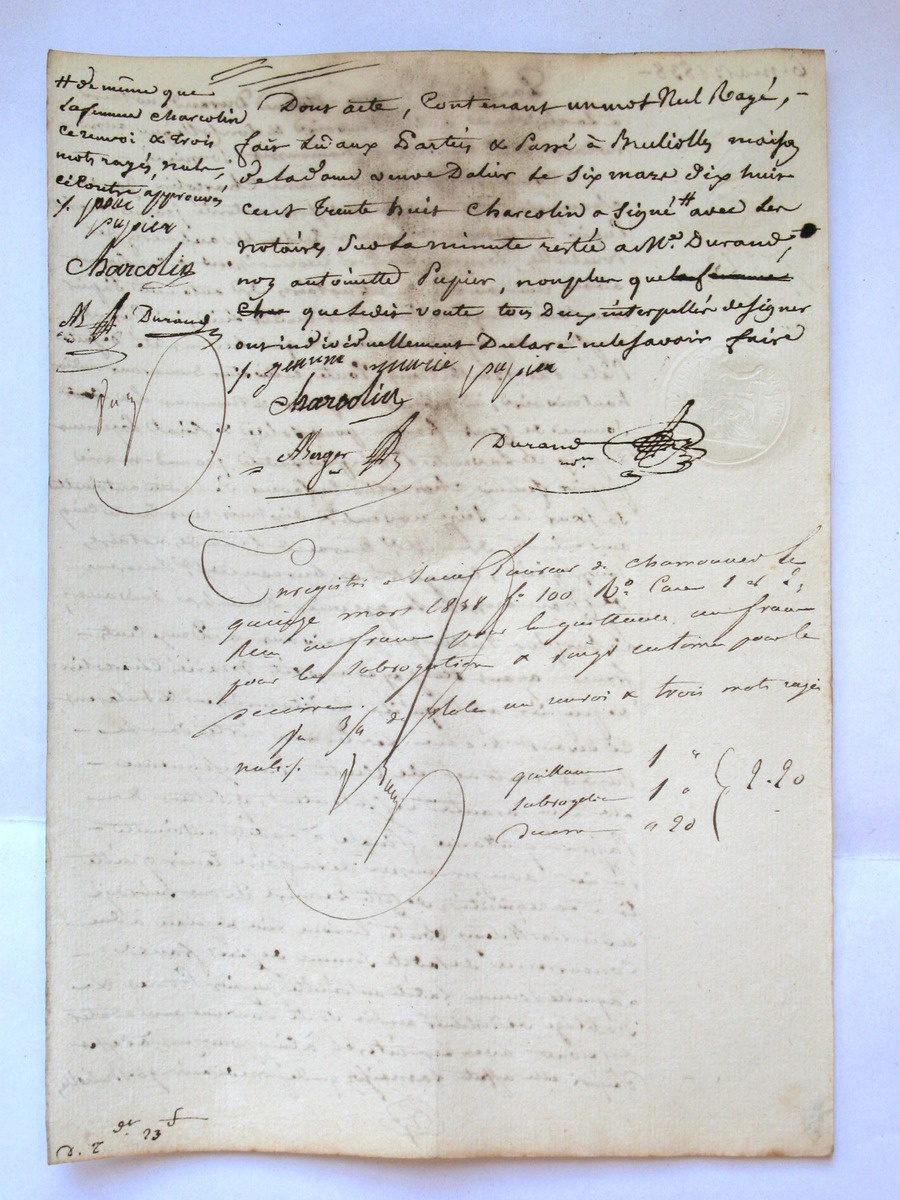 # de même que
la femme Charcolin
ce renvoi & trois
mots rayés, nuls,
ci contre approuvés
papier
Charcolin
Durand
Dont acte, Contenant un mot Nul Rayé, -
fait Lû aux Parties & Passé à maison
de la dame veuve Dalier Le Six mars dix huit
cent trente huit Charcolin a Signé # avec Les
notaires Sur La minute restée a Me. Durand,
non antoinette Pupier, non plus que la femme
Char que Ledit voute tous Deux interpellés de signer
ont individuellement Déclaré ne le Savoir faire
marie papier
Charcolin
Berger
Durand
Enregistré a Saint de chamounet Le
quinze mars 1838 fo 100 Ro. Case 1 et 2,
Reçu un franc pour la quittance, un franc
pour la Subrogation & vingt centimes pour le
décime. de plus un renvoi & trois mots rayés
nuls /.
quittance 1 "
Subrogation 1 "
décime " 20
2-20
23